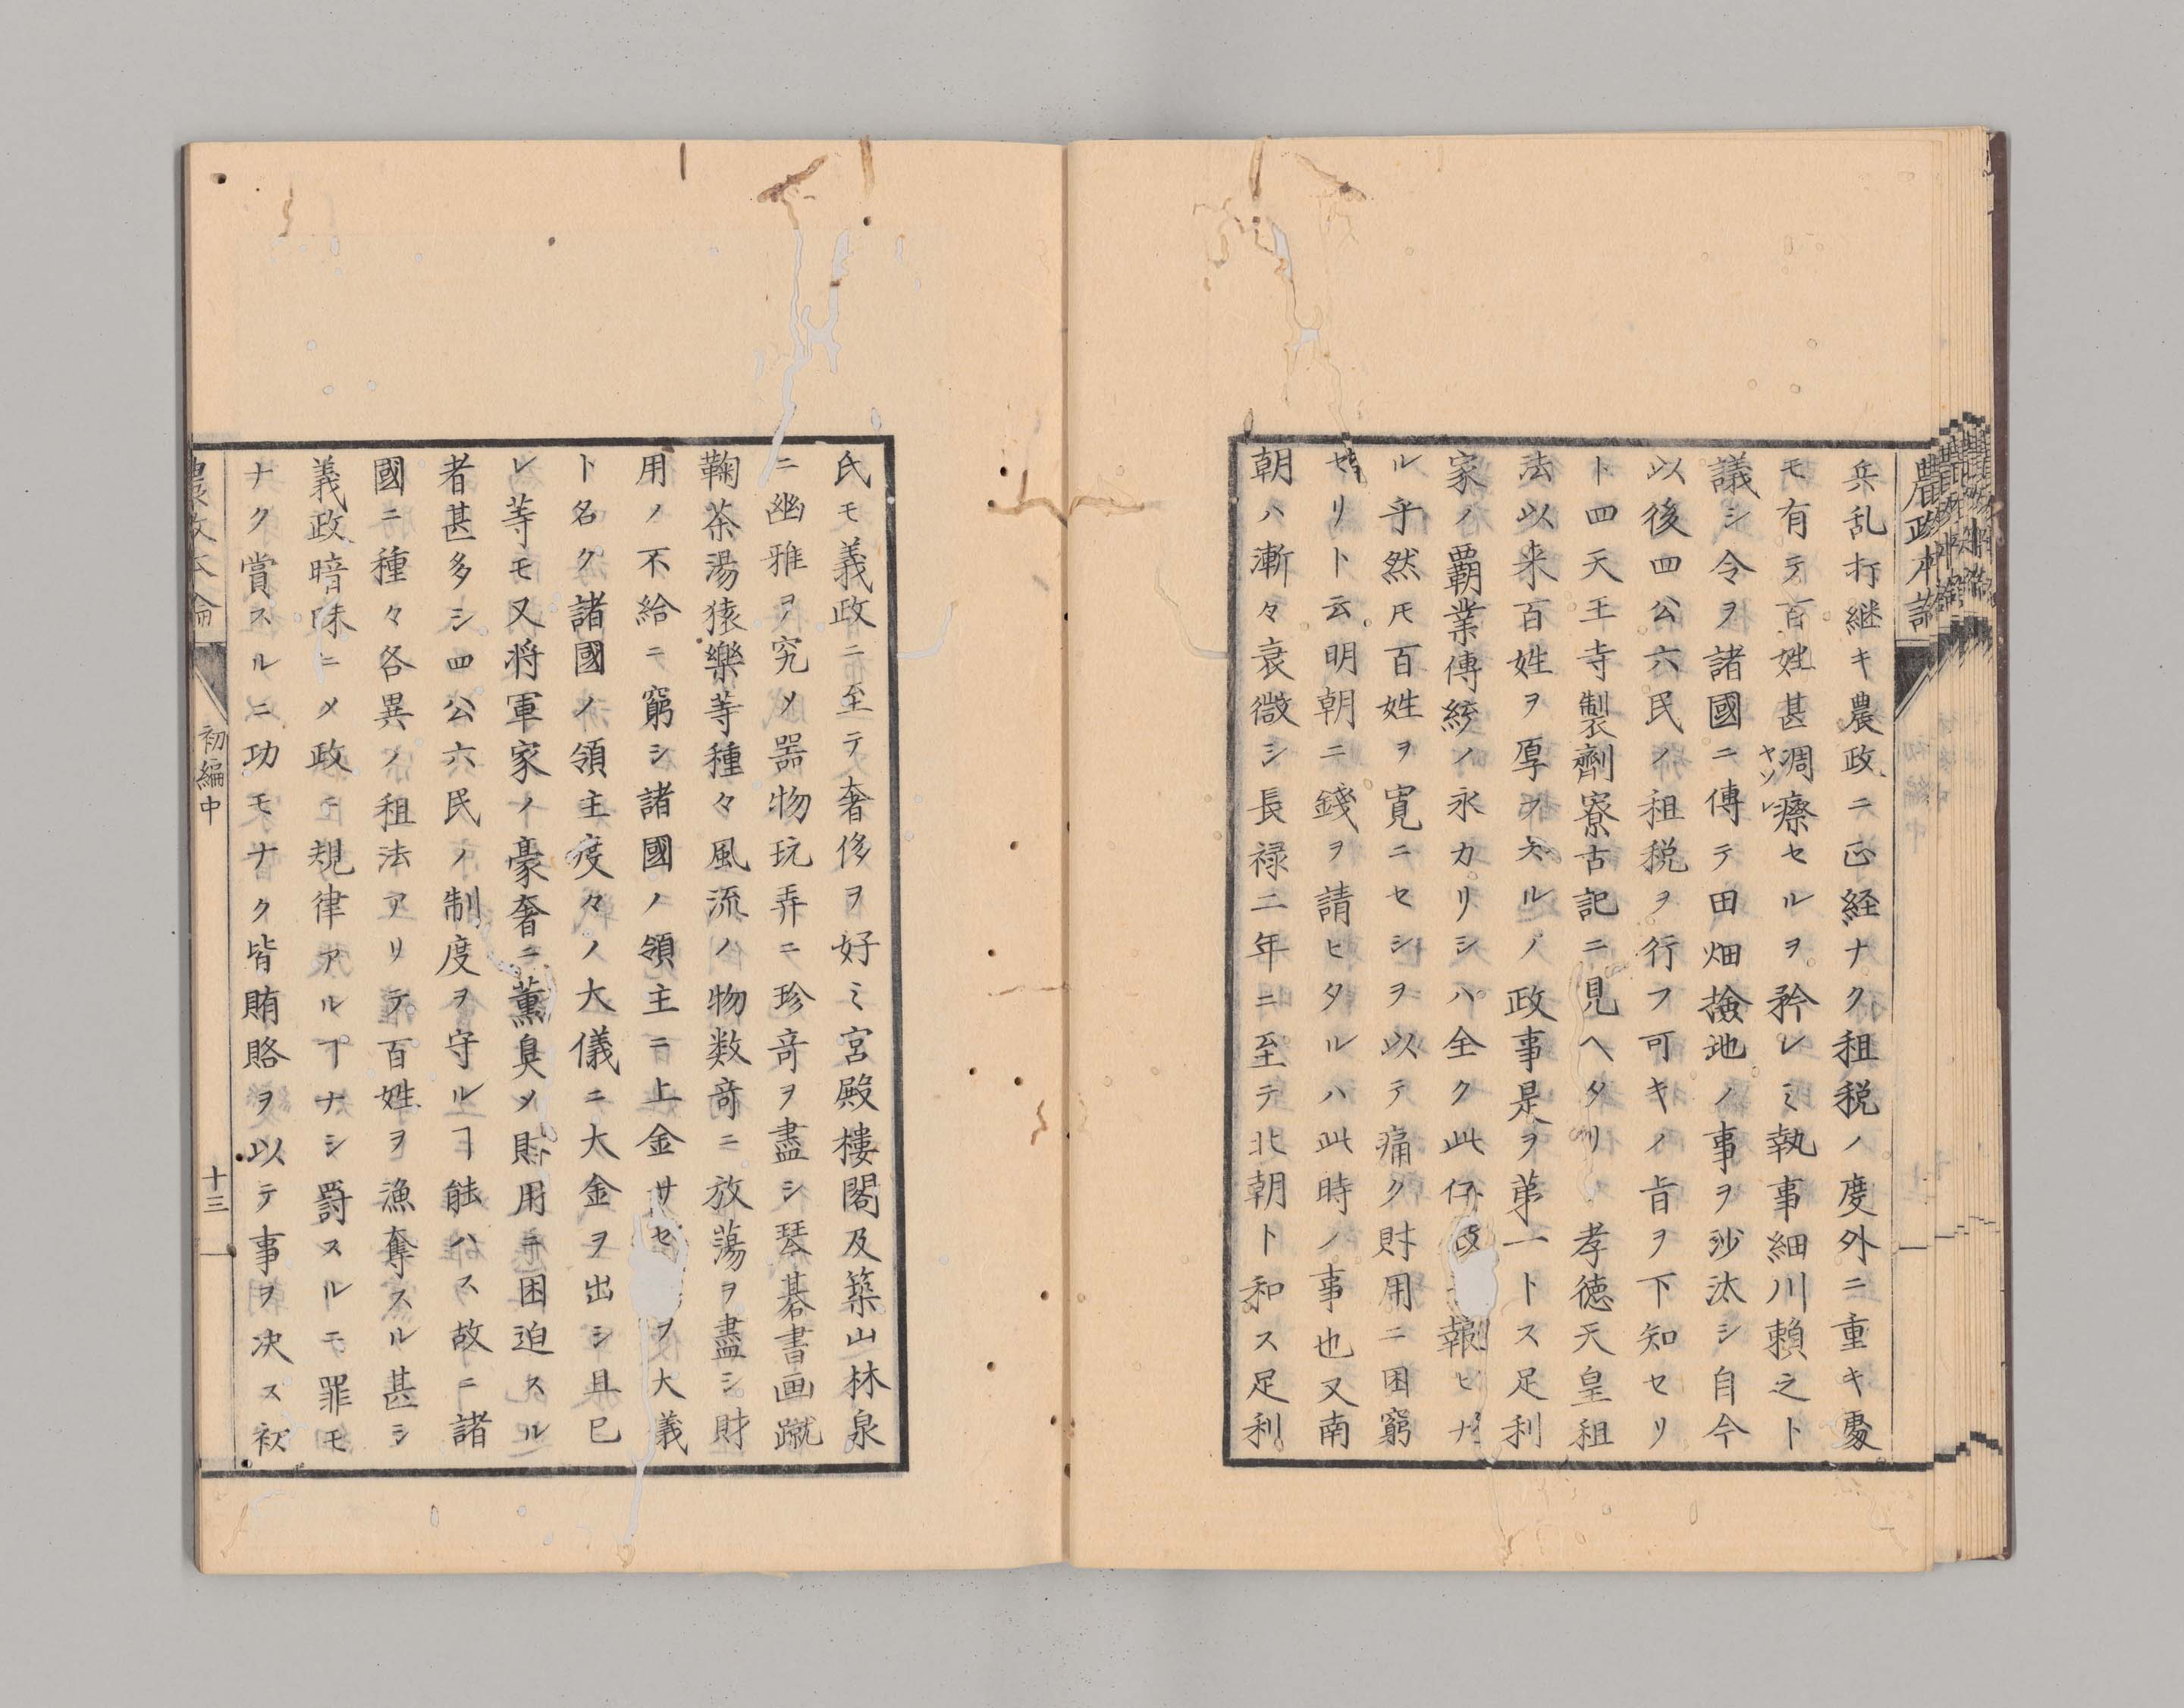 農政本論
兵乱打継キ農政ニ正経ナク租税ノ度外ニ重キ處
モ有テ百姓甚凋瘵セルヲ矜レミ執事細川頼之ト
ヤツレ
議シ令ヲ諸國ニ傳テ田畑撿地ノ事ヲ沙汰シ自今
以後四公六民ノ租税ヲ行フ可キノ旨ヲ下知セリ
ト四天王寺製劑寮古記ニ見ヘタリ孝徳天皇租
法以来百姓ヲ厚フスルノ政事是ヲ第一トス足利
家ノ覇業傳統ノ永カリシハ全ク此仁政ノ報ヒナ
ル乎然𪜈百姓ヲ寛ニセシヲ以テ痛ク財用ニ困窮
セリト云明朝ニ錢ヲ請ヒタルハ此時ノ事也又南
朝ハ漸々衰微シ長禄二年ニ至テ北朝ト和ス足利
氏モ義政ニ至テ奢侈ヲ好ミ宮殿樓閣及築山林泉
ニ幽雅ヲ究メ噐物玩弄ニ珍竒ヲ盡シ琴碁書画蹴
鞠茶湯猿樂等種々風流ノ物数竒ニ放蕩ヲ盡シ財
用ノ不給ニ窮シ諸國ノ領主ニ上金サセヲ大義
ト名ク諸國ノ領主度々ノ大儀ニ大金ヲ出シ且已
レ等モ又将軍家ノ豪奢ニ薫臭メ財用ニ困迫スル
者甚多シ四公六民ノ制度ヲ守ルヿ能ハス故ニ諸
國ニ種々各異ノ租法アリテ百姓ヲ漁奪スル甚シ
義政暗昧ニメ政ニ規律アルヿナシ罸スルモ罪モ
ナク賞スルニ功モナク皆賄賂ヲ以テ事ヲ决ス衩
農政本論
初編中
十三